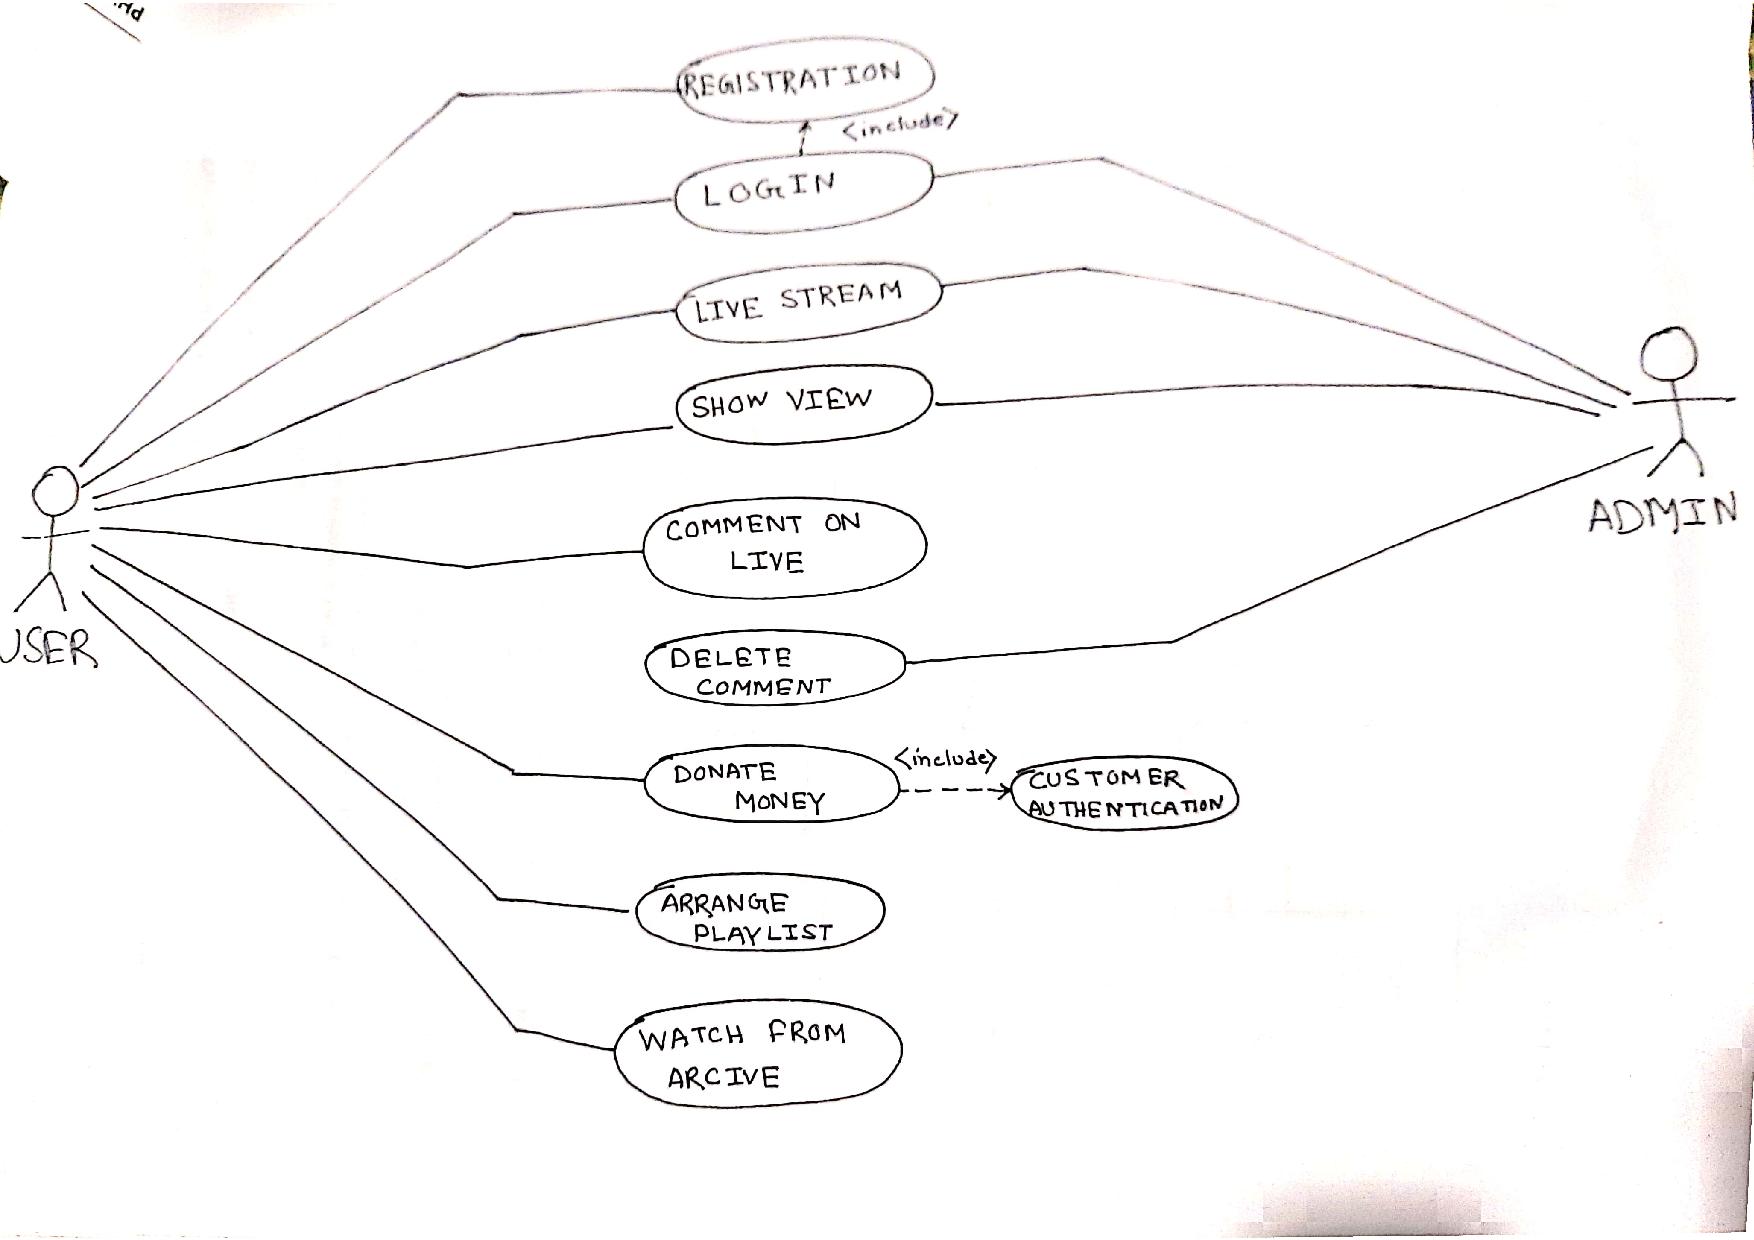 REGISTRATION
<include>
LOGIN
LIVE STREAM
SHOW VIEW
COMMENT ON
LIVE
ADMIN
USER
DELETE
COMMENT
DONATE
MONEY
<include>
CUSTOMER
AUTHENTICATION
ARRANGE
PLAYLIST
WATCH FROM
ARCIVE